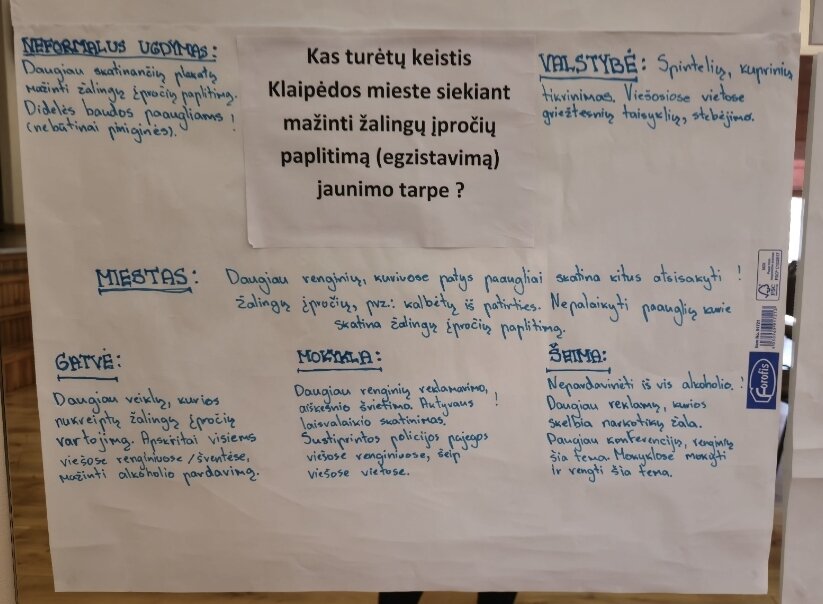 NEFORMALUS UGDYMAS:
Daugiau skatinančių plakatų
mažinti žalingų įpročių paplitimą.
Didelės baudos paaugliams !
(nebūtinai piniginės).
Kas turėtų keistis
Klaipėdos mieste siekiant
mažinti žalingų įpročių
paplitimą (egzistavimą)
jaunimo tarpe ?
VALSTYBĖ: Spintelių, kuprinių
tikrinimas. Viešosiose vietose
griežtesnių taisyklių, stebėjimo.
MIESTAS: Daugiau renginių, kuriuose patys paaugliai skatina kitus atsisakyti !
žalingų įpročių, pvz.: kalbėtų iš patirties. Nepalaikyti paauglių kurie
skatina žalingų įpročių paplitimą.
GATVĖ:
Daugiau veiklų, kurios
nukreiptų žalingų įpročių
vartojimą. Apskritai visiems
viešose renginiuose / šventėse,
mažinti alkoholio pardavimą.
MOKYKLA:
Daugiau renginių reklamavimo,
aiškesnio švietimo. Aktyvaus !
laisvalaikio skatinimas.
Sustiprintos policijos pajėgos
viešose renginiuose, šeip
viešose vietose.
ŠEIMA:
Nepardavinėti iš vis alkoholio. !
Daugiau reklamų, kurios
skelbia narkotikų žalą.
Daugiau konferencijų, renginių
šia tema. Mokyklose mokyti
ir rengti šia tema.
FSC
Forofis